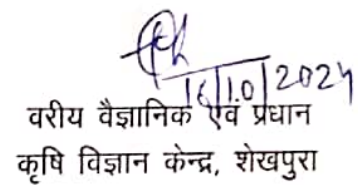 16/10/2024
वरीय वैज्ञानिक एवं प्रधान
कृषि विज्ञान केन्द्र, शेखपुरा